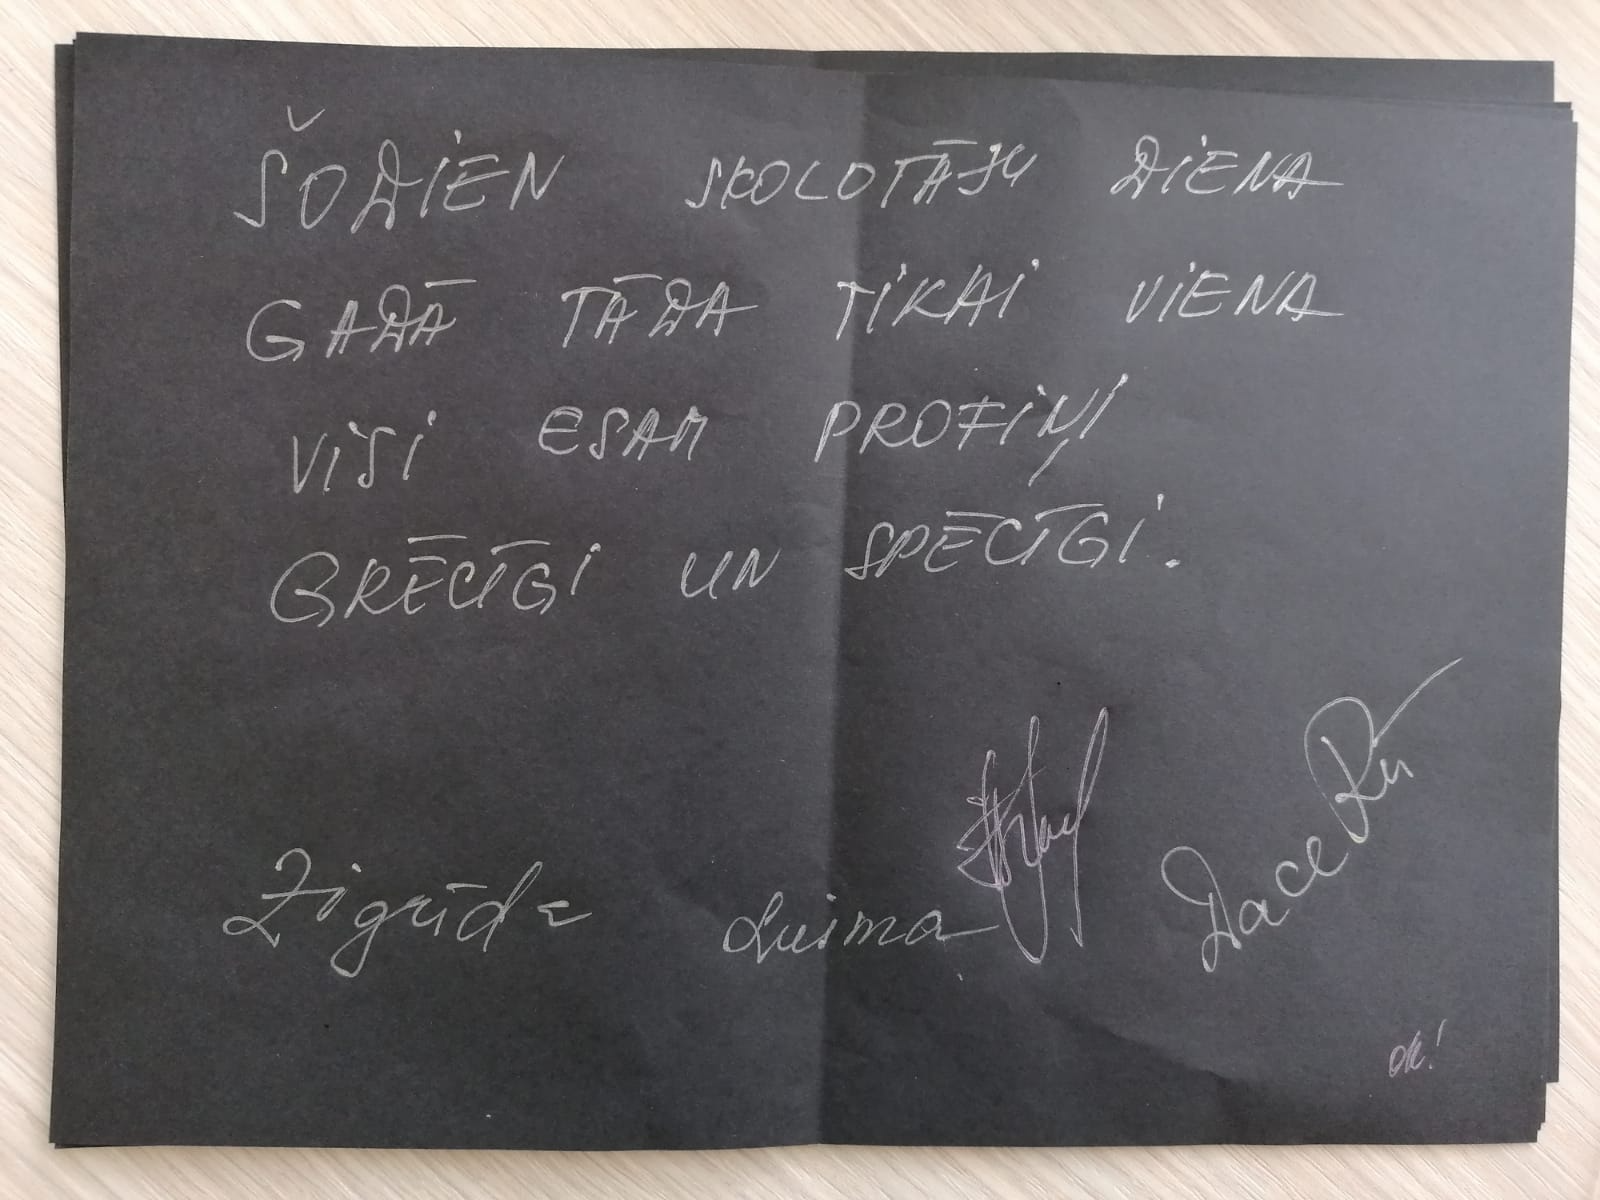 ŠODIEN SKOLOTĀJU DIENA
GADĀ TĀDA TIKAI VIENA
VISI ESAM PROFIŅI
GRĒCĪGI UN SPĒCĪGI.
Zigrīda
Dace
ok!